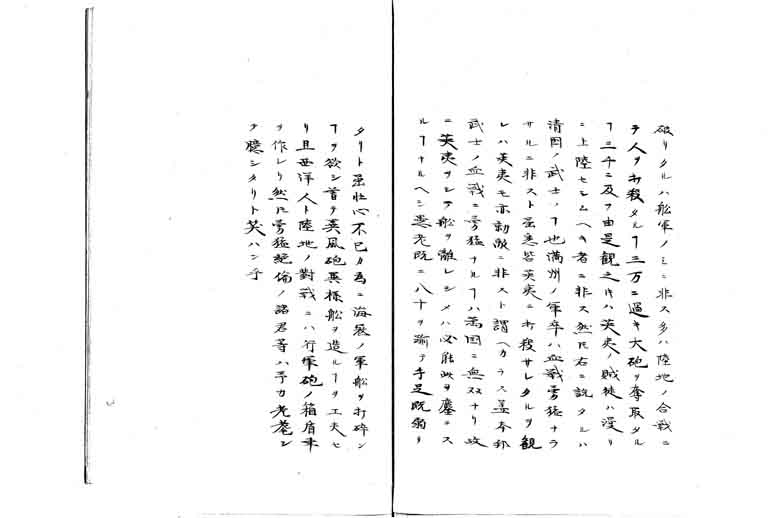 破リタルハ船軍ノミニ非ス多ハ陸地ノ合戰ニ
テ人ヲ打殺タルヿ三万ニ過キ大砲ヲ奪取タル
ヿ三千ニ及フ由是観之ハ英夷ノ賊徒ハ漫リ
ニ上陸セシムヘキ者ニ非ス然𪜈右ニ說タルハ
清国ノ武士ノヿ也満州ノ軍卒ハ血戰勇猛ナラ
サルニ非スト虽悉皆英夷ニ打殺サレタルヲ観
レハ英夷モ亦勍敵ニ非スト謂ヘカラス盖本邦
武士ノ血戰ニ勇猛ナルヿハ萬国ニ無双ナリ故
ニ英夷ヲシテ船ヲ離レシメハ必能此ヲ鏖ニス
ルヿナルヘシ愚老既ニ八十ヲ踰テ手足既弱リ
タリト虽壮心不已カ為ニ海㓂ノ軍船ヲ打碎ン
ヿヲ欲シ首テ異風砲異樣船ヲ造ルヿヲ工夫セ
リ且西洋人ト陸地ノ對戰ニハ行軍砲ノ箱盾車
ヲ作レリ然𪜈勇猛絶倫ノ諸君等ハ予カ老耄シ
テ臆シタリト笑ハン乎